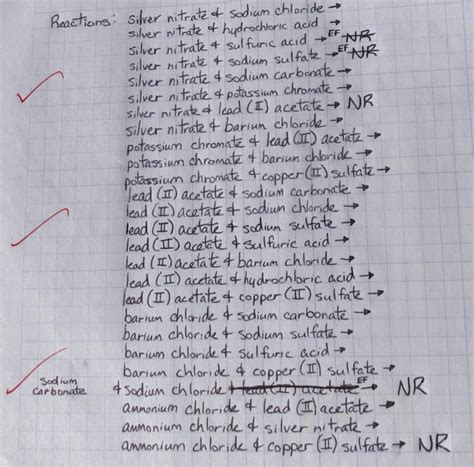 Reactions: silver nitrate & sodium chloride →
silver nitrate & hydrochloric acid →
silver nitrate & sulfuric acid → EF NR
silver nitrate & sodium sulfate → EF NR
silver nitrate & sodium carbonate →
silver nitrate & potassium chromate →
silver nitrate & lead (II) acetate → NR
silver nitrate & barium chloride →
potassium chromate & lead (II) acetate →
potassium chromate & barium chloride →
potassium chromate & copper (II) sulfate →
lead (II) acetate & sodium carbonate →
lead (II) acetate & sodium chloride →
lead (II) acetate & sodium sulfate →
lead (II) acetate & sulfuric acid →
lead (II) acetate & barium chloride →
lead (II) acetate & hydrochloric acid →
lead (II) acetate & copper (II) sulfate →
barium chloride & sodium carbonate →
barium chloride & sodium sulfate →
barium chloride & sulfuric acid →
barium chloride & copper (II) sulfate →
Sodium Carbonate & Sodium chloride & lead (II) acetate EF → NR
ammonium chloride & lead (II) acetate →
ammonium chloride & silver nitrate →
ammonium chloride & copper (II) sulfate → NR